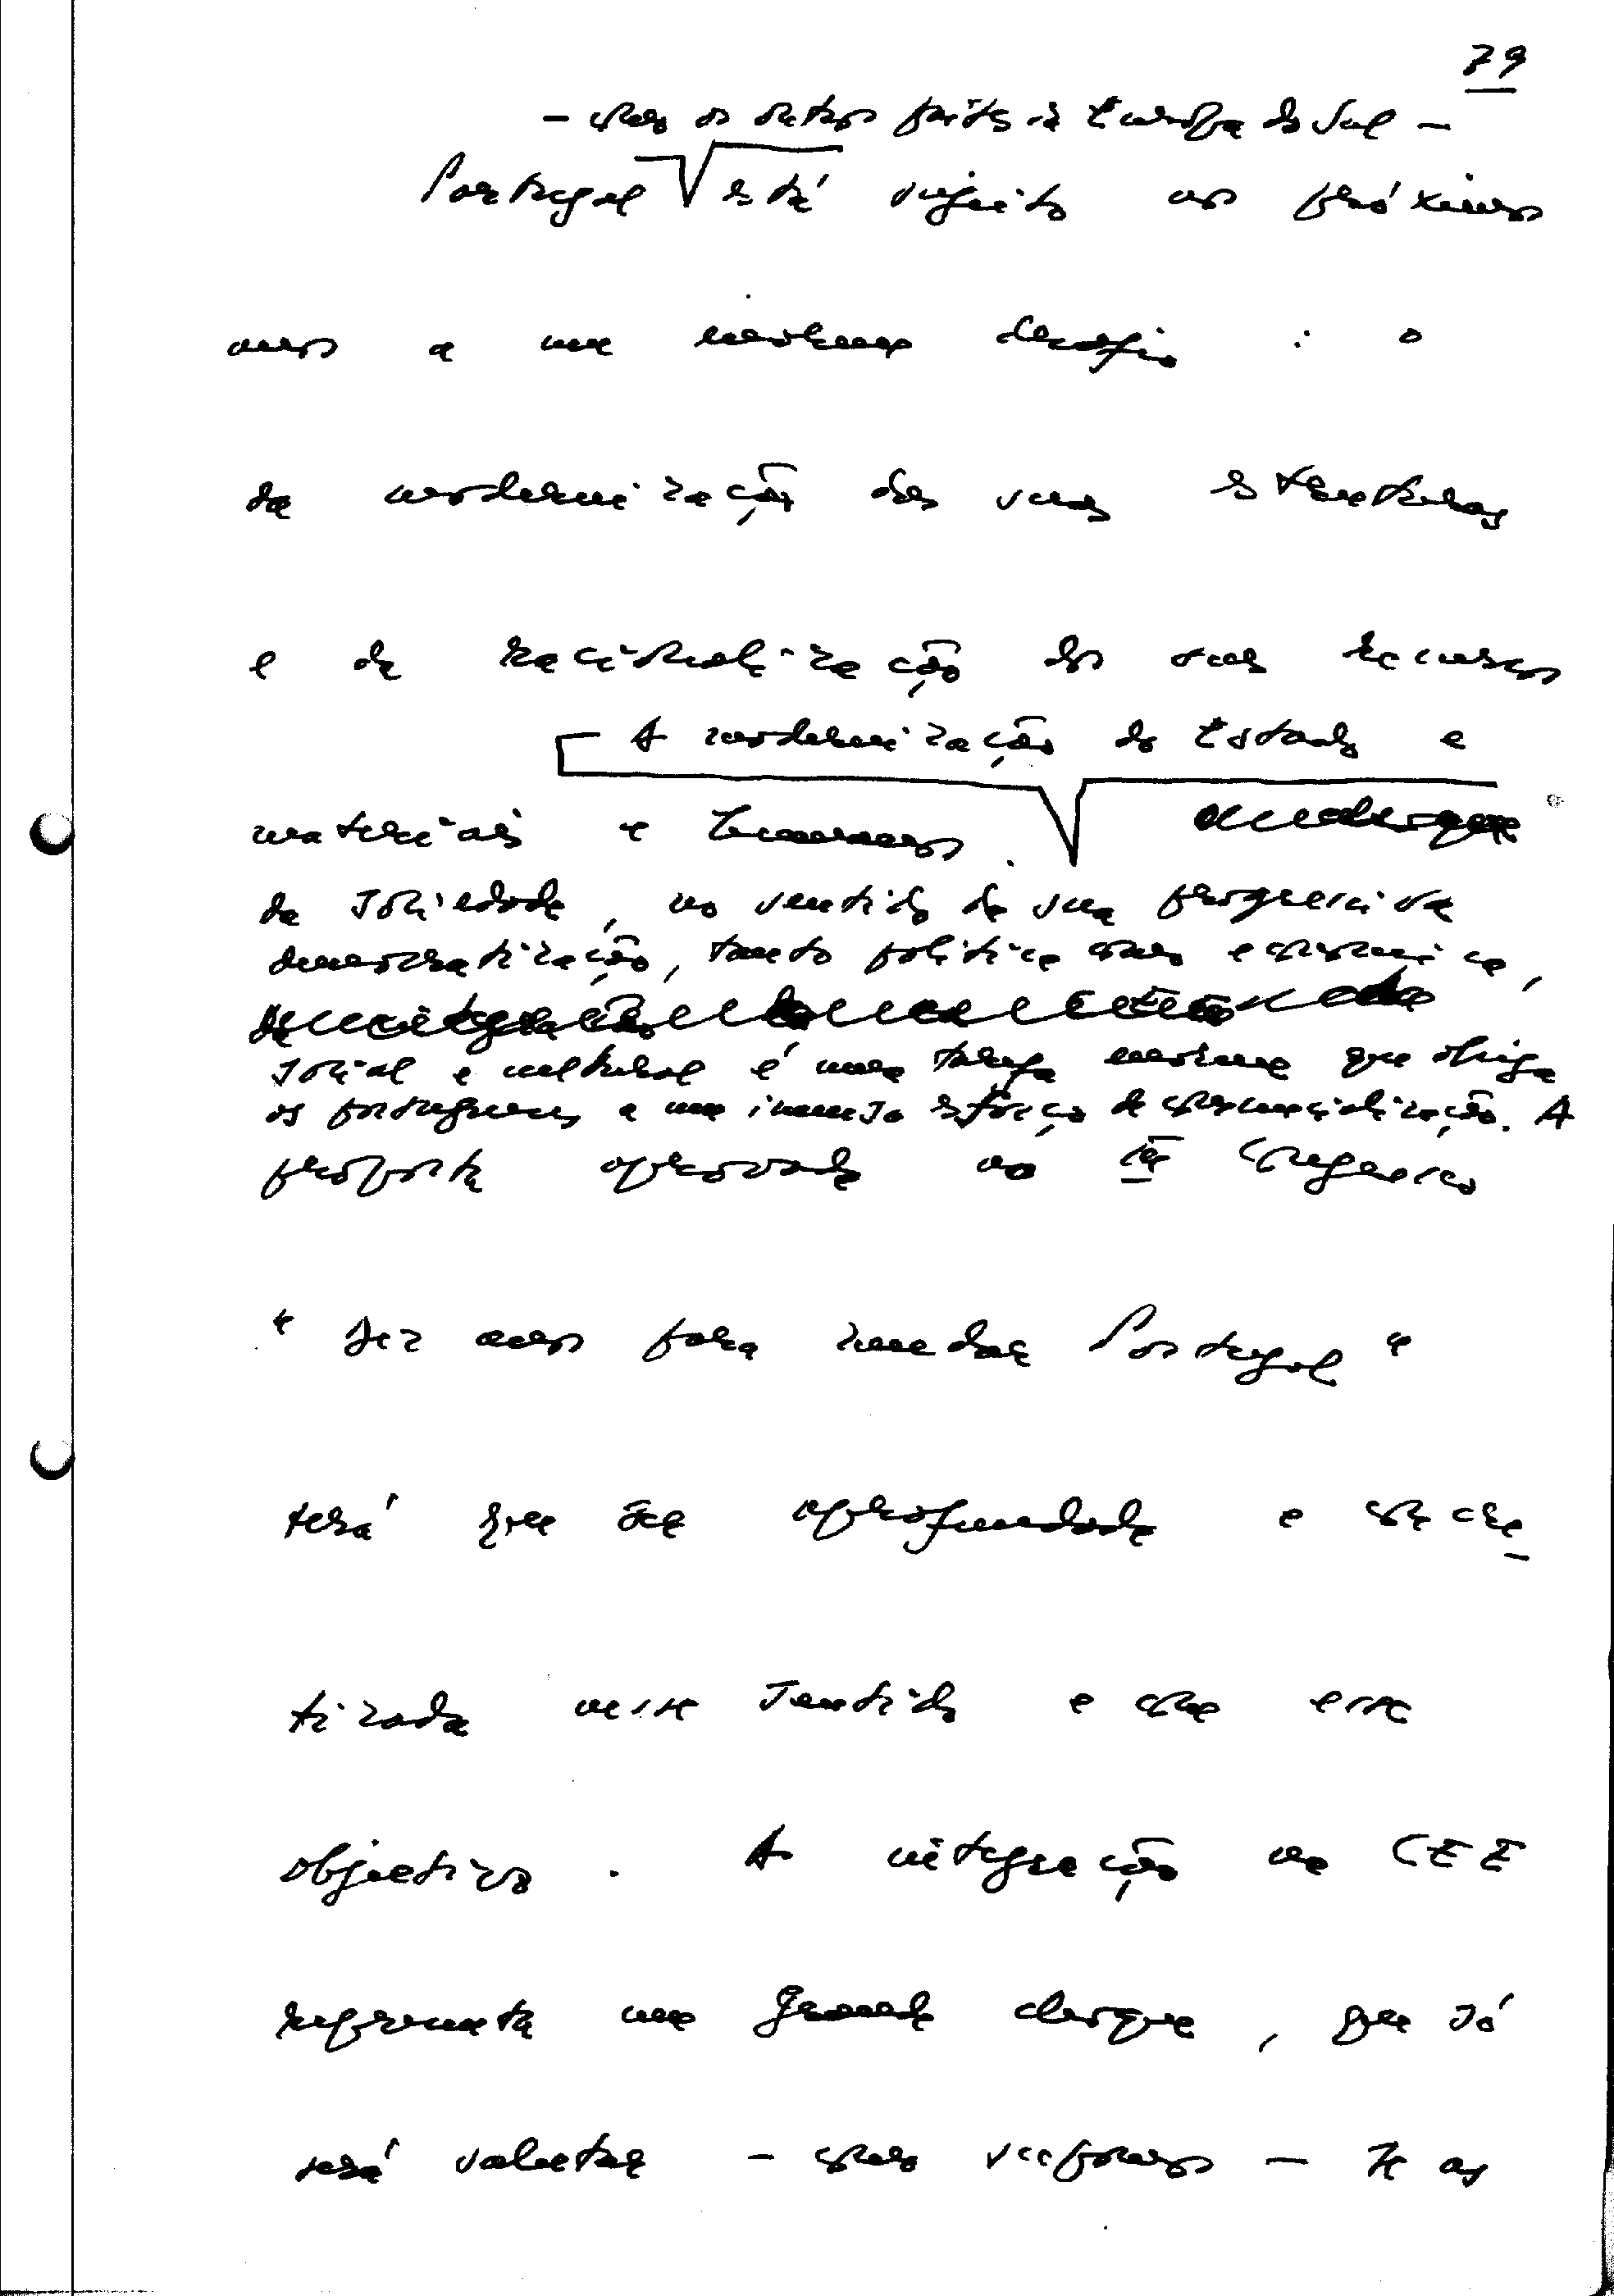 79
– como os outros países da Europa do Sul –
Portugal está sujeito nos próximos
anos a um enorme desafio : o
da modernização das suas estruturas
e da racionalização dos seus recursos
A modernização do Estado e
materiais e humanos.
da sociedade, no sentido da sua progressiva
democratização, tanto política como económica,
social e cultural é uma tarefa enorme que obriga
os portugueses a um imenso esforço de consciencialização. A
proposta aprovada no III Congresso
"Dez anos para mudar Portugal"
terá que ser aprofundada e concre
tizada nesse sentido e com esse
objectivo. A integração na CEE
representa um grande choque, que só
será salutar – como supomos – se as